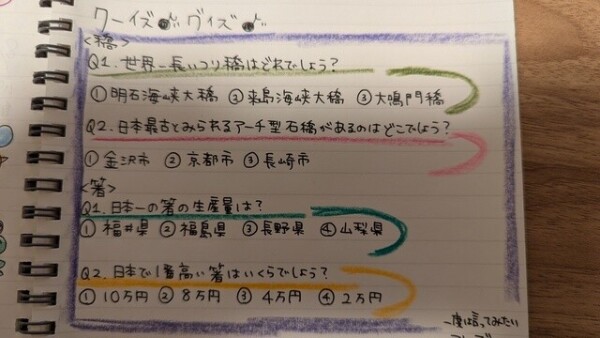 クーイズ クイズ
<橋>
Q1. 世界一長いつり橋はどれでしょう?
① 明石海峡大橋 ② 来島海峡大橋 ③ 大鳴門橋
Q2. 日本最古とみられるアーチ型石橋があるのはどこでしょう?
① 金沢市 ② 京都市 ③ 長崎市
<箸>
Q1. 日本一の箸の生産量は?
① 福井県 ② 福島県 ③ 長野県 ④ 山梨県
Q2. 日本で1番高い箸はいくらでしょう?
① 10万円 ② 8万円 ③ 4万円 ④ 2万円
一度は言ってみたい